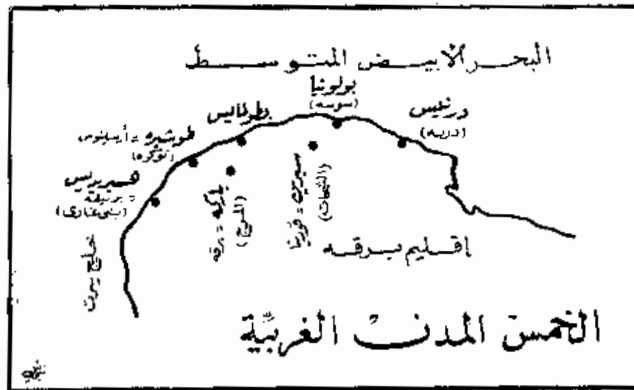 البحر الأبيض المتوسط
بولونيا
(سوسه)
درنيس
(درنه)
بطولمايس
طوشيره = أرسينوى
(توكره)
هسبريدس
= برنيقه
(بنى غازى)
خليج سرت
باركه = برقه
(المرج)
سيرين = قورينا
(الشحات)
إقليم برقه
الخمس المدن الغربيّة